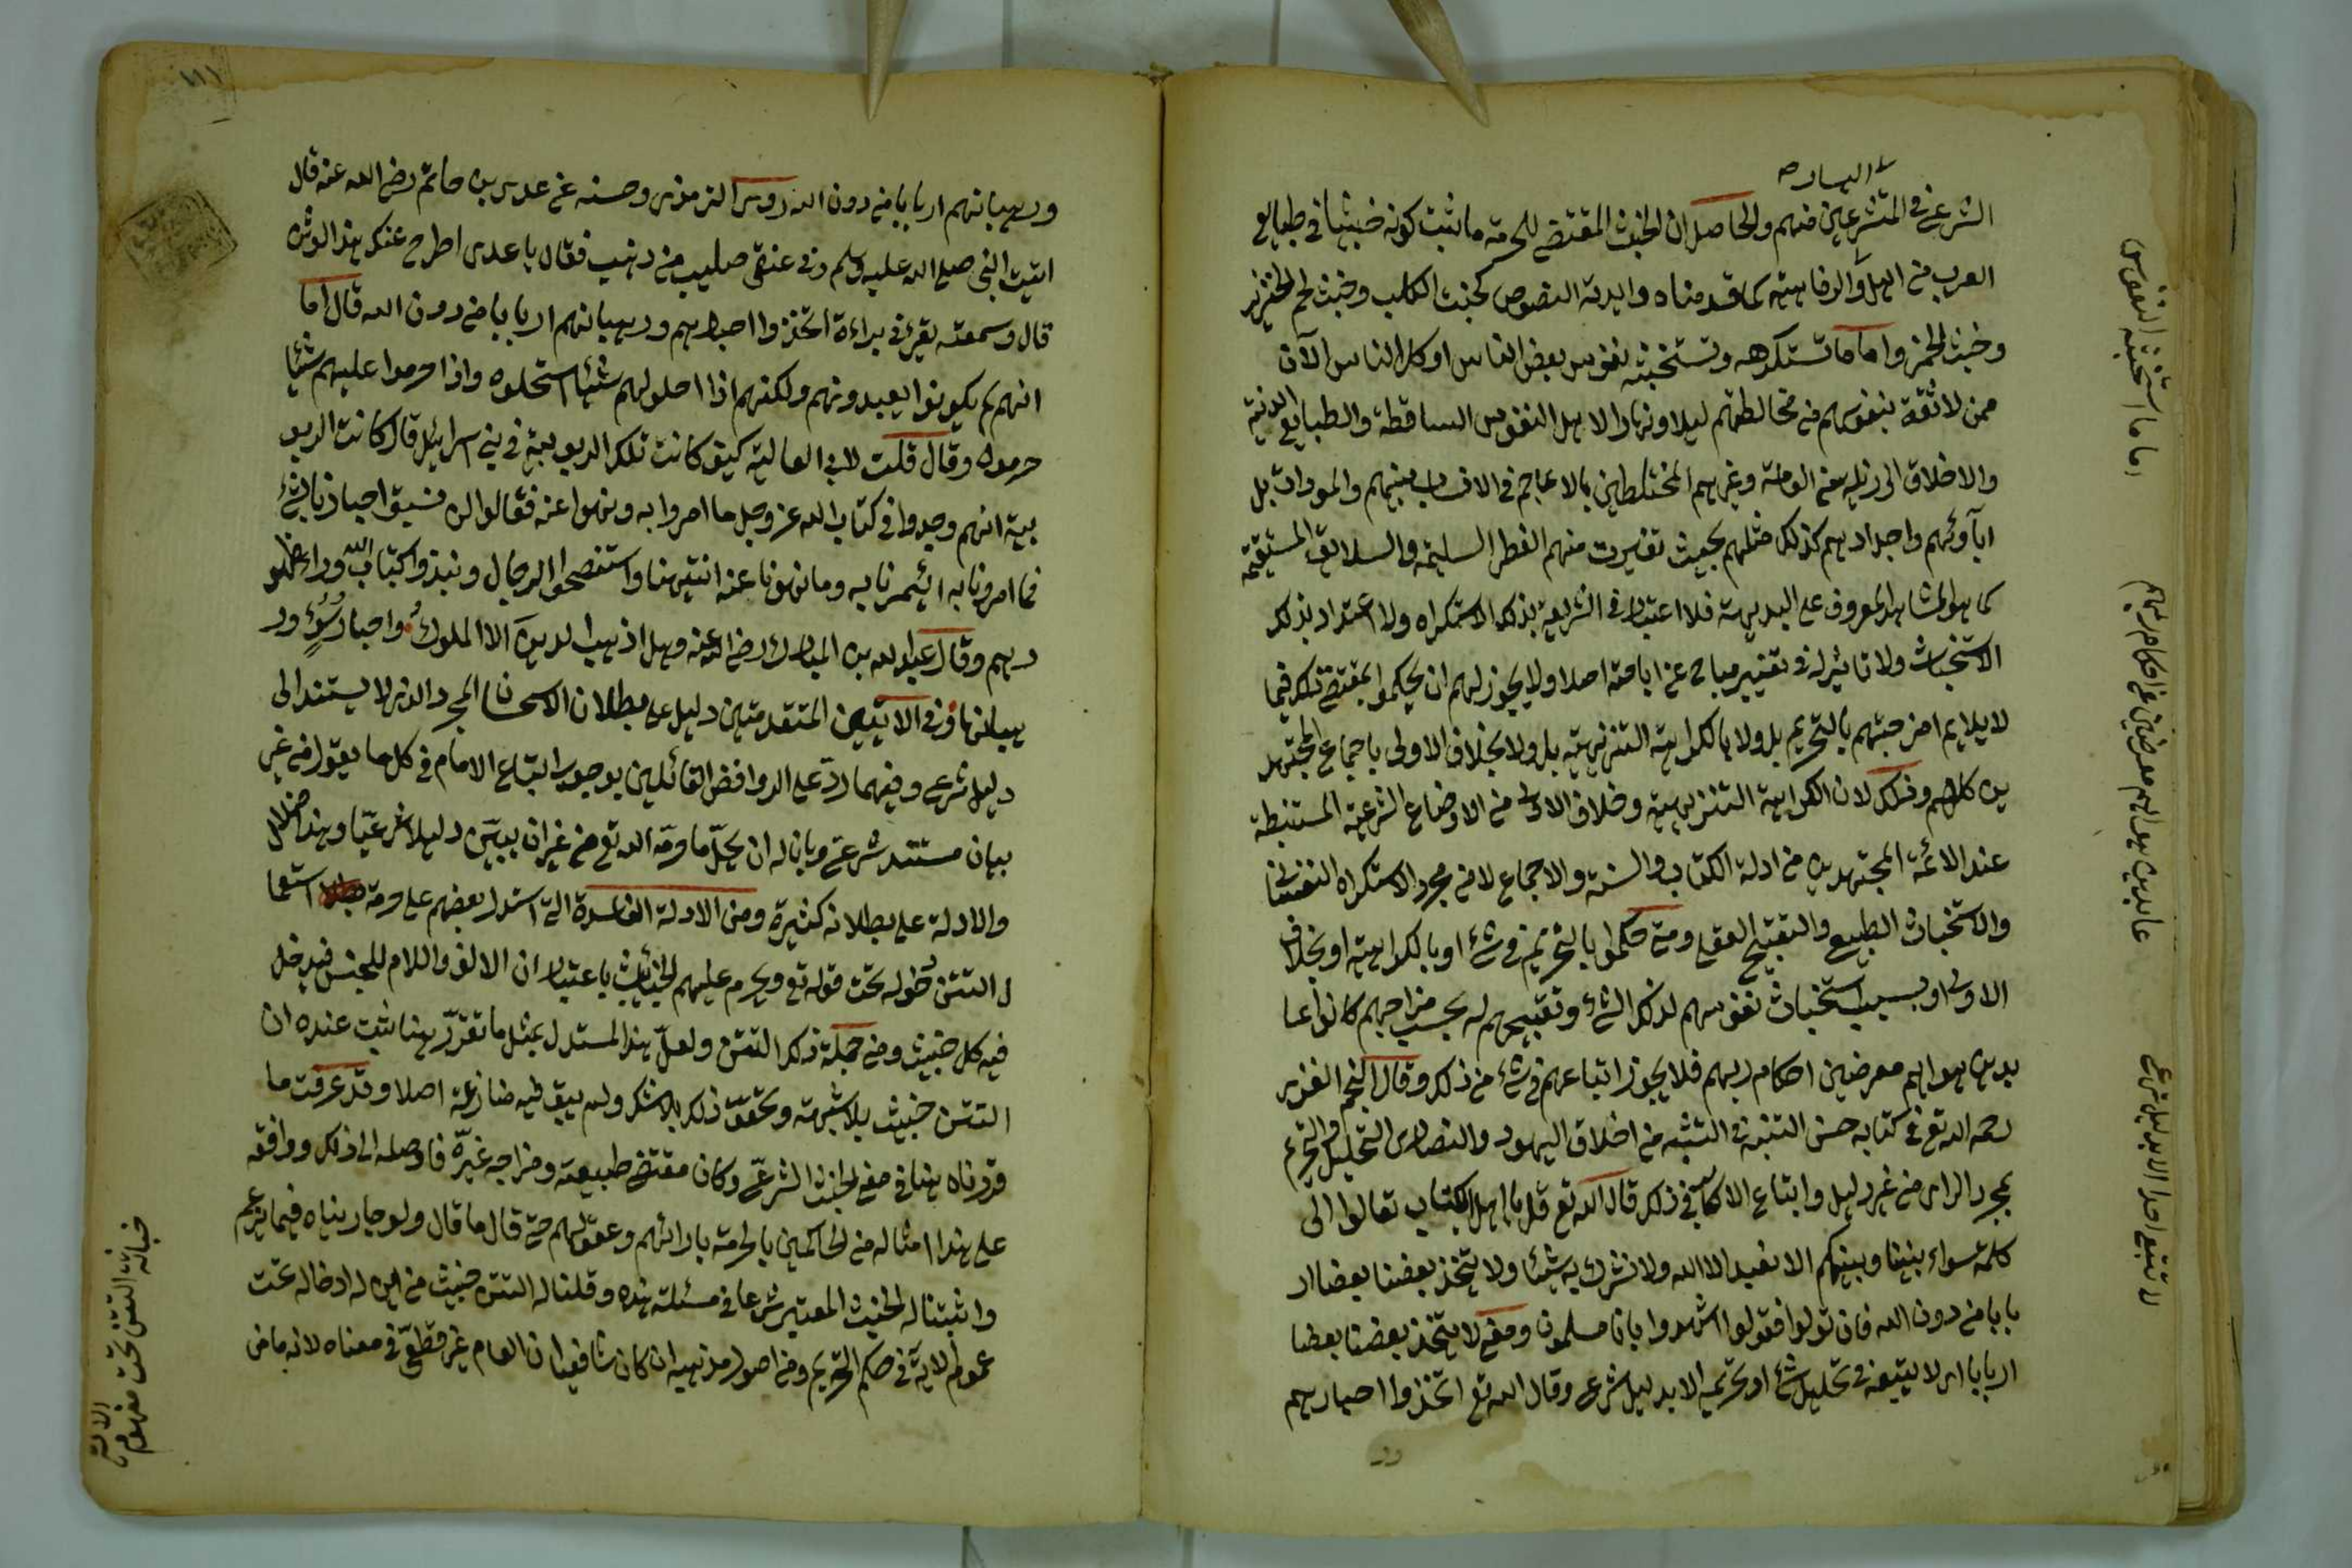 الشرعي في المتشرعين منهم والحاصل ان الخبث المقتضي للحرمة ما ثبت كونه خبيثا في طبايع
العرب من اهل الرفاهية كما قدمناه وايدته النصوص كخبث الكلب وخبث لحم الخنزير
وخبث الخمر واما ما تستكرهه وتستخبثه نفوس بعض الناس او كل الناس الآن
ممن لا ثقة بنفوسهم من مخالطتهم ليلا ونهارا لاهل النفوس الساقطة والطبايع الدنية
والاخلاق الرذيلة من العامة وغيرهم المختلطين بالاعاجم في الانساب بينهم والمودات بل
ابآؤهم واجدادهم كذلك مثلهم بحيث تغيرت منهم الفطر السليمة والسلايق المستقيمة
كما هو المشاهد المعروف على البديهة فلا اعتبار في الشريعة بذلك الاستكراه ولا اعتداد بذلك
الاستخباث ولا تاثير له في تغيير مباح عن اباحته اصلا ولا يجوز لهم ان يحكموا بمقتضى ذلك فيما
لا يلايم امزجتهم بالتحريم بل ولا بالكراهة التنزيهية بل ولا بخلاف الاولى باجماع المجتهد
ين كلهم وذلك لان الكراهة التنزيهية وخلاف الاولى من الاوضاع الشرعية المستنبطة
عند الائمة المجتهدين من ادلة الكتاب والسنة والاجماع لا من مجرد الاستكراه النفساني
والاستخباث الطبيعي والتقبيح العقلي ومتى حكموا بالتحريم في شئ او بالكراهية او بخلاف
الاولى او بسبب استخباث نفوسهم لذلك الشئ وتقبيحهم له بحسب مزاجهم كانوا عا
بدين هواهم معرضين احكام ربهم فلا يجوز اتباعهم في شئ من ذلك وقال النجم الغزي
رحمه الله تع في كتابه حسن التنبه في التشبه من اخلاق اليهود والنصارى التحليل والتحريم
بمجرد الراى من غير دليل واتباع الاكابر في ذلك قال الله تع قل يا اهل الكتاب تعالوا الى
كلمة سواء بيننا وبينكم الا نعبد الا الله ولا نشرك به شيئا ولا يتخذ بعضنا بعضا ار
بابا من دون الله فان تولوا فقولوا اشهدوا بانا مسلمون ومعنى لا يتخذ بعضنا بعضا
اربابا اى لا يتبعه في تحليل شئ او تحريمه الا بدليل شرعي وقال الله تع اتخذوا احبارهم
ور
اما ما استخبثه النفوس
عابدين هواهم معرضين عن احكام ربهم
لا تتبع احدا الا بدليل شرعي
ورهبانهم اربابا من دون الله روى الترمذى وحسنه عن عدى بن حاتم رضى الله عنه قال
اتيت النبى صلى الله عليه وسلم وفي عنقى صليب من ذهب فقال يا عدى اطرح عنك هذا الوثن
قال وسمعته يقرئ في براءة اتخذوا احبارهم ورهبانهم اربابا من دون الله قال اما
انهم لم يكونوا يعبدونهم ولكنهم اذا احلوا لهم شيئا استحلوه واذا حرموا عليهم شيئا
حرموه وقال قلت لابى العالية كيف كانت تلك الربوبية في بني اسرائيل قال كانت الربو
بية انهم وجدوا في كتاب الله عز وجل ما امروا به ونهوا عنه فقالوا لن نسبق احبارنا بشئ
فما امرونا به ائتمرنا به وما نهونا عنه انتهينا واستنصحوا الرجال ونبذوا كتاب الله وراء ظهو
رهم وقال عبد الله بن المبارك رضى الله عنه وهل اذهب الدين الا الملوك واحبار سوء ور
هبانها وفي الايتين المتقدمتين دليل على بطلان الاستحسان المجرد الذى لا يستند الى
دليل شرعي وفيهما رد على الروافض القائلين بوجوب اتباع الامام في كل ما يقول من غير
بيان مستند شرعي وبان له ان يحل ما حرم الله تع من غير ان يبين دليلا شرعيا وهذا ضلال
والادلة على بطلانه كثيرة ومن الادلة الفاسدة التي استدل بعضهم على حرمة استعما
ل التتن دخوله تحت قوله تع ويحرم عليهم الخبايث باعتبار ان الالف واللام للجنس فيدخل
فيه كل خبيث ومن جملة ذلك التتن ولعل هذا المستدل بمثل ما تقرر هنا ثبت عنده ان
التتن خبيث بلا شبهة وتحقق ذلك بلا شك ولم يبق فيه منازعة اصلا وقد عرفت ما
قررناه هنا في معنى الخبث الشرعي وكان مقتضى طبيعته ومزاجه غيره فاوصله الى ذلك ووافقه
على هذا امثاله من الحاكمين بالحرمة بارائهم وعقولهم حتى قال ما قال ولو جاريناه فيما زعم
واثبتنا له الخبيث المعتبر شرعا في مسئلته هذه وقلنا له التتن خبيث من اين له ادخاله تحت
عموم الاية في حكم التحريم ومن اصول مذهبه ان كان شافعيا ان العام غير قطعي في معناه لانه ما من
خباثة التتن تحت مفهوم
الاية